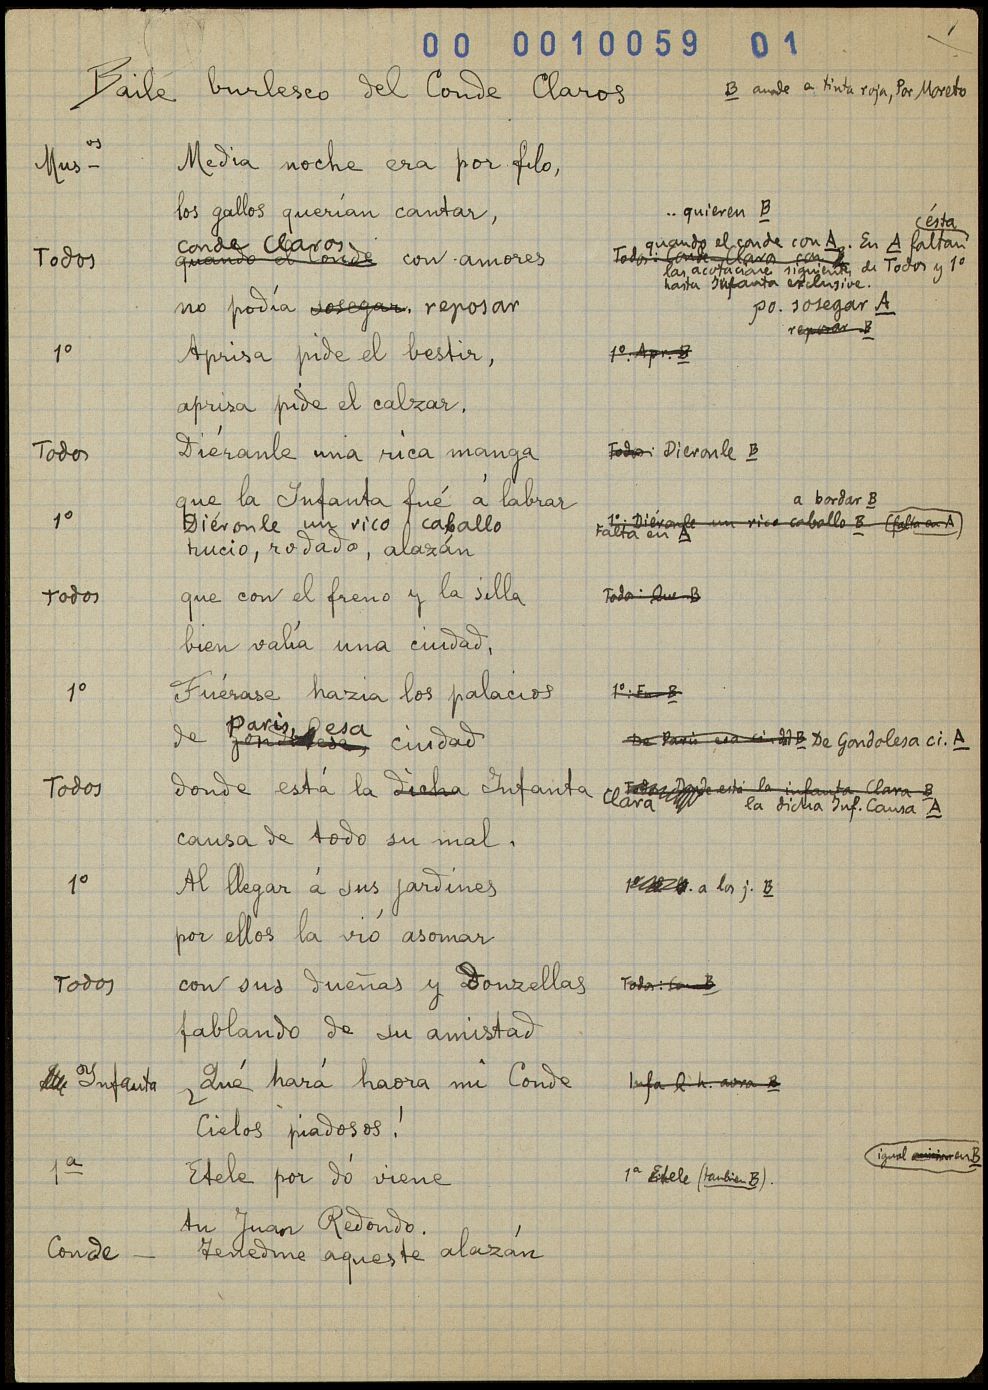 00 0010059 01
1
Baile burlesco del Conde Claros
B añade a tinta roja, Por Moreto
Mus.os Media noche era por filo,
los gallos querían cantar,
.. quieren B
Todos conde Claros
quando el Conde con amores
quando el conde con A. En A faltan
ésta
Todos: Conde Claros con B
las acotaciones siguientes de Todos y 1º
hasta Infanta exclusive.
no podía sosegar. reposar
po. sosegar A
reposar B
1º Aprisa pide el bestir,
1º: Apr. B
aprisa pide el calzar.
Todos Diéranle una rica manga
Todos: Dieronle B
que la Infanta fué á labrar
a bordar B
1º Diéronle un rico caballo
1º: Diéronle un rico caballo B (falta en A)
Falta en A
rucio, rodado, alazán
Todos que con el freno y la silla
Todos: Que B
bien valía una ciudad,
1º Fuérase hazia los palacios
1º: Fu. B
Paris, esa
de ciudad
De Paris esa ciudad B De Gondolesa ci. A
Todos donde está la dicha Infanta
Clara
Todos: Donde está la infanta Clara B
la dicha Inf. Causa A
causa de todo su mal.
1º Al llegar á sus jardines
1º a los j. B
por ellos la vió asomar
Todos con sus dueñas y Donzellas
Todos: Con B
fablando de su amistad
Infanta ¿Qué hará haora mi Conde
Infa Q. h. aora B
Cielos piadosos!
igual en B
1ª Etele por dó viene
1ª Etele (tambien B).
tu Juan Redondo.
Conde — Tenedme aqueste alazán